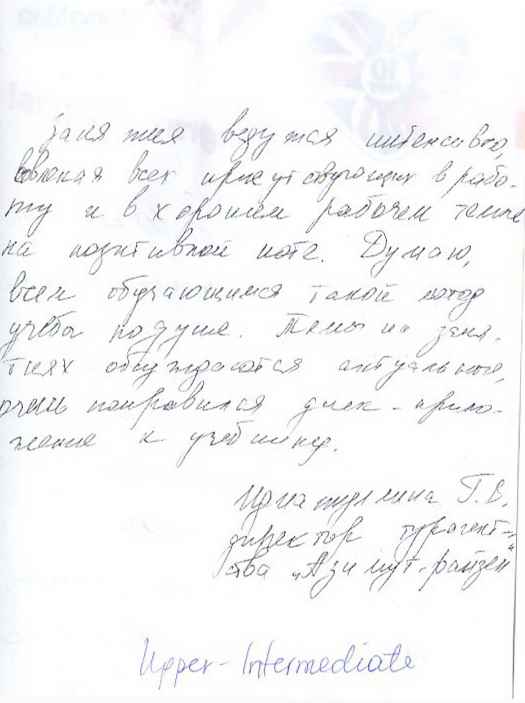 Занятия ведутся интенсивно,
вовлекая всех присутствующих в рабо-
ту и в хорошем рабочем темпе
на позитивной ноте. Думаю,
всем обучающимся такой метод
учебы по душе. Темы на заня-
тиях обсуждаются актуальные,
очень понравился диск-прило-
жение к учебнику.
Г.В.
директор турагент-
ства „Азимут-райзен"
Upper-Intermediate